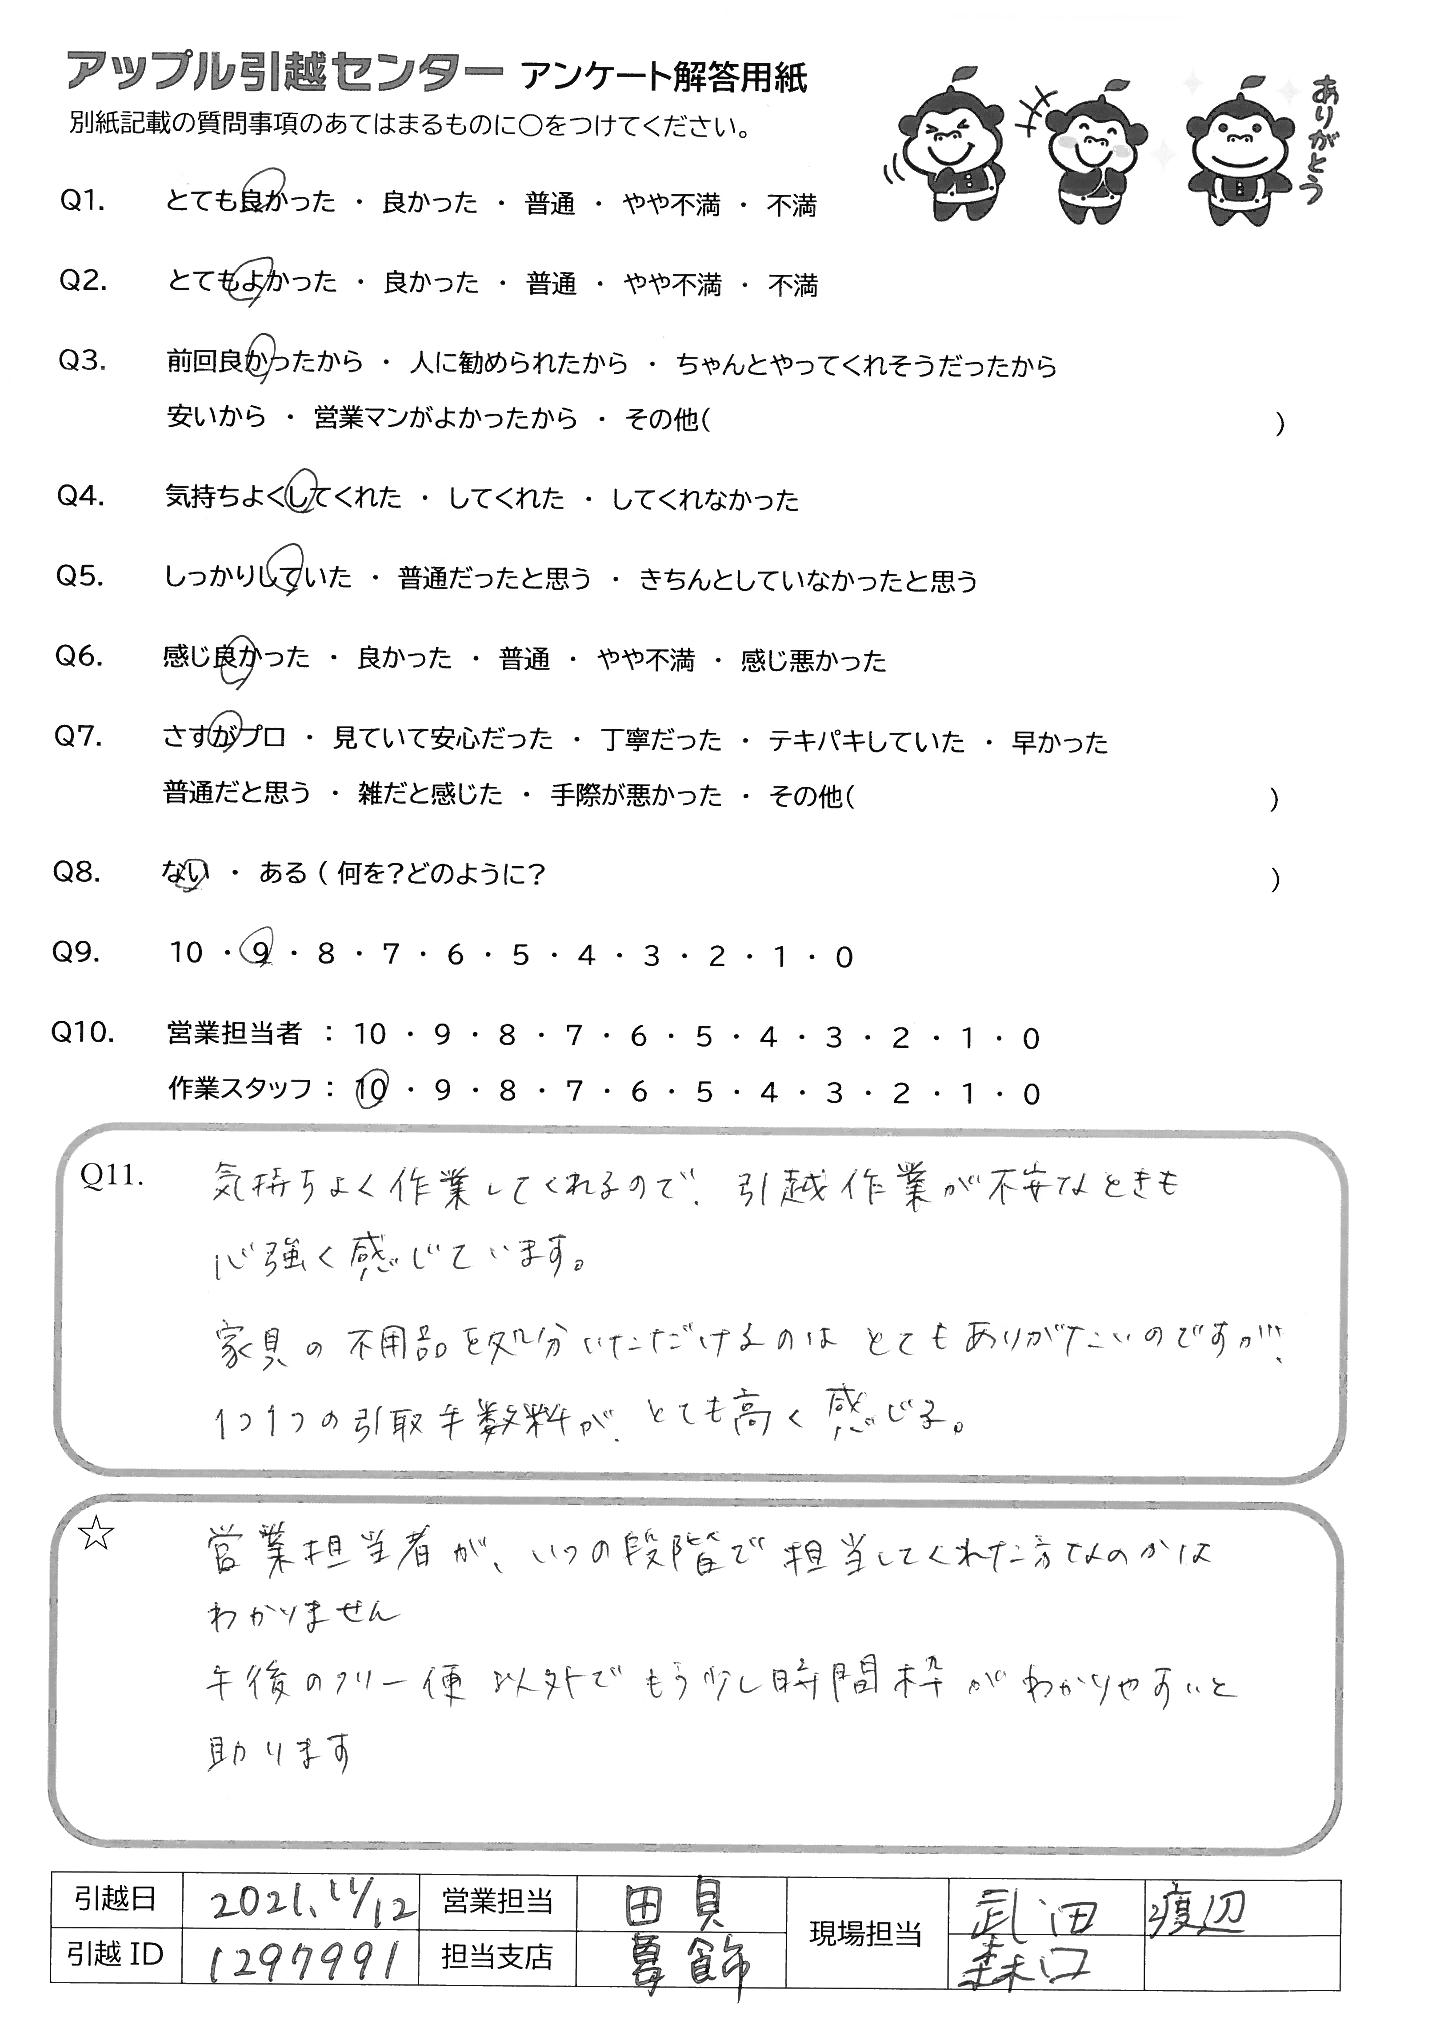 アップル引越センター アンケート解答用紙
別紙記載の質問事項のあてはまるものに〇をつけてください。
ありがとう
Q1. とても良かった ・ 良かった ・ 普通 ・ やや不満 ・ 不満
Q2. とてもよかった ・ 良かった ・ 普通 ・ やや不満 ・ 不満
Q3. 前回良かったから ・ 人に勧められたから ・ ちゃんとやってくれそうだったから
安いから ・ 営業マンがよかったから ・ その他( )
Q4. 気持ちよくしてくれた ・ してくれた ・ してくれなかった
Q5. しっかりしていた ・ 普通だったと思う ・ きちんとしていなかったと思う
Q6. 感じ良かった ・ 良かった ・ 普通 ・ やや不満 ・ 感じ悪かった
Q7. さすがプロ ・ 見ていて安心だった ・ 丁寧だった ・ テキパキしていた ・ 早かった
普通だと思う ・ 雑だと感じた ・ 手際が悪かった ・ その他( )
Q8. ない ・ ある ( 何を?どのように? )
Q9. 10 ・ 9 ・ 8 ・ 7 ・ 6 ・ 5 ・ 4 ・ 3 ・ 2 ・ 1 ・ 0
Q10. 営業担当者 : 10 ・ 9 ・ 8 ・ 7 ・ 6 ・ 5 ・ 4 ・ 3 ・ 2 ・ 1 ・ 0
作業スタッフ : 10 ・ 9 ・ 8 ・ 7 ・ 6 ・ 5 ・ 4 ・ 3 ・ 2 ・ 1 ・ 0
Q11. 気持ちよく作業してくれるので、引越作業が不安なときも
心強く感じています。
家具の不用品を処分いただけるのはとてもありがたいのですが、
1つ1つの引取手数料が、とても高く感じる。
☆ 営業担当者が、いつの段階で担当してくれた方なのかは
わかりません
午後のフリー便以外でもう少し時間枠がわかりやすいと
助ります
引越日 2021、11/12 営業担当 田貝 現場担当 武田 渡辺
引越ID 1297991 担当支店 葛飾 森口